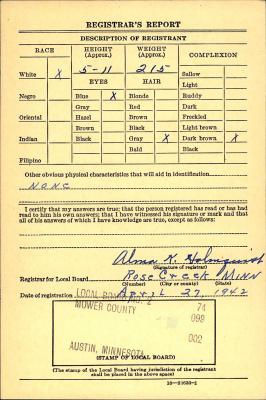 REGISTRAR'S REPORT
DESCRIPTION OF REGISTRANT
RACE HEIGHT (Approx.) WEIGHT (Approx.) COMPLEXION
White X 5-11 215 Sallow
EYES HAIR Light
Negro Blue X Blonde Ruddy
Gray Red Dark
Oriental Hazel Brown Freckled
Brown Black Light brown
Indian Black Gray X Dark brown X
Bald Black
Filipino
Other obvious physical characteristics that will aid in identification
NONE
I certify that my answers are true; that the person registered has read or has had
read to him his own answers; that I have witnessed his signature or mark and that
all of his answers of which I have knowledge are true, except as follows:
Alma K. Holmquist
(Signature of registrar)
Registrar for Local Board Rose Creek MINN
(Number) (City or county) (State)
Date of registration April 27, 1942
LOCAL BOARD NO. 2
MOWER COUNTY
74
099
002
AUSTIN, MINNESOTA
(STAMP OF LOCAL BOARD)
(The stamp of the Local Board having jurisdiction of the registrant
shall be placed in the above space)
16—21630-2